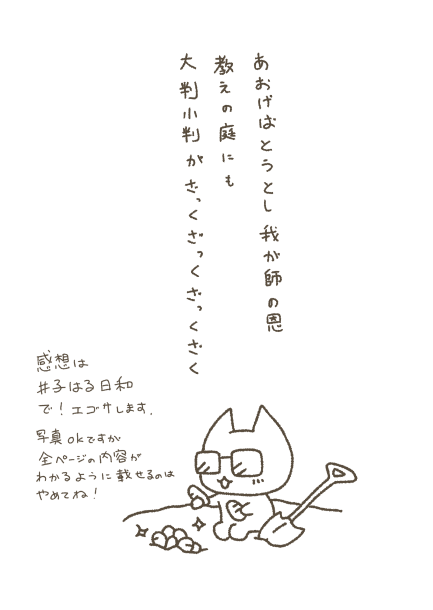 あおげばとうとし我が師の恩
教えの庭にも
大判小判がざっくざっくざっくざく
感想は
#子はる日和
で!エゴサします。
写真okですが
全ページの内容が
わかるように載せるのは
やめてね!